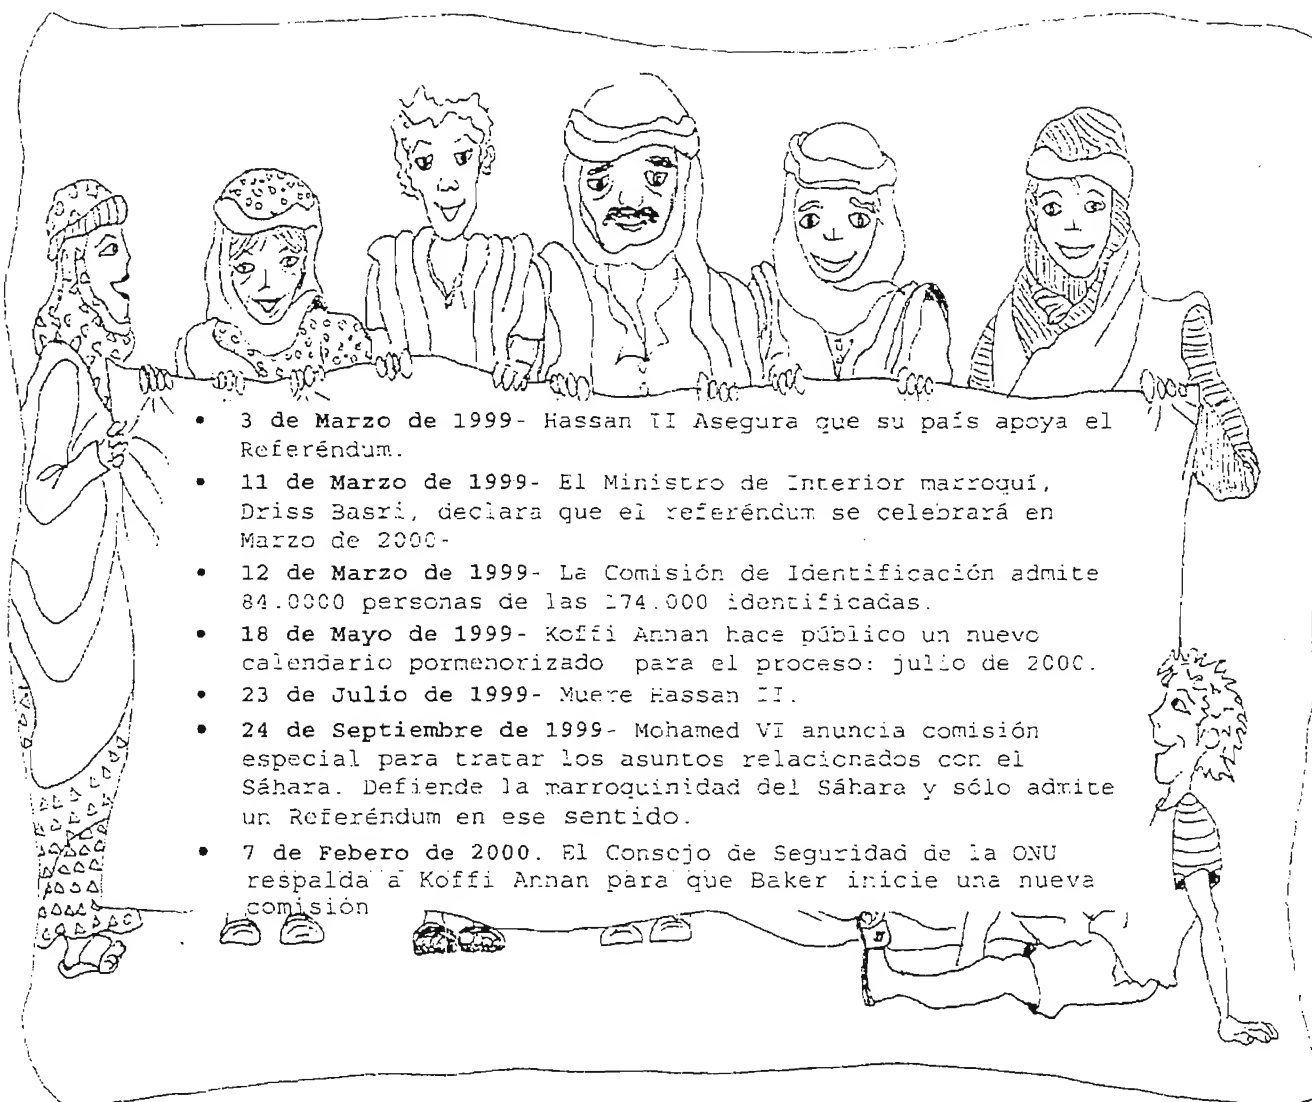 • 3 de Marzo de 1999- Hassan II Asegura que su país apoya el
Referéndum.
• 11 de Marzo de 1999- El Ministro de Interior marroquí,
Driss Basri, declara que el referéndum se celebrará en
Marzo de 2000-
• 12 de Marzo de 1999- La Comisión de Identificación admite
84.0000 personas de las 174.000 identificadas.
• 18 de Mayo de 1999- Koffi Annan hace público un nuevo
calendario pormenorizado para el proceso: julio de 2000.
• 23 de Julio de 1999- Muere Hassan II.
• 24 de Septiembre de 1999- Mohamed VI anuncia comisión
especial para tratar los asuntos relacionados con el
Sáhara. Defiende la marroquinidad del Sáhara y sólo admite
un Referéndum en ese sentido.
• 7 de Febero de 2000. El Consejo de Seguridad de la ONU
respalda a Koffi Annan para que Baker inicie una nueva
comisión